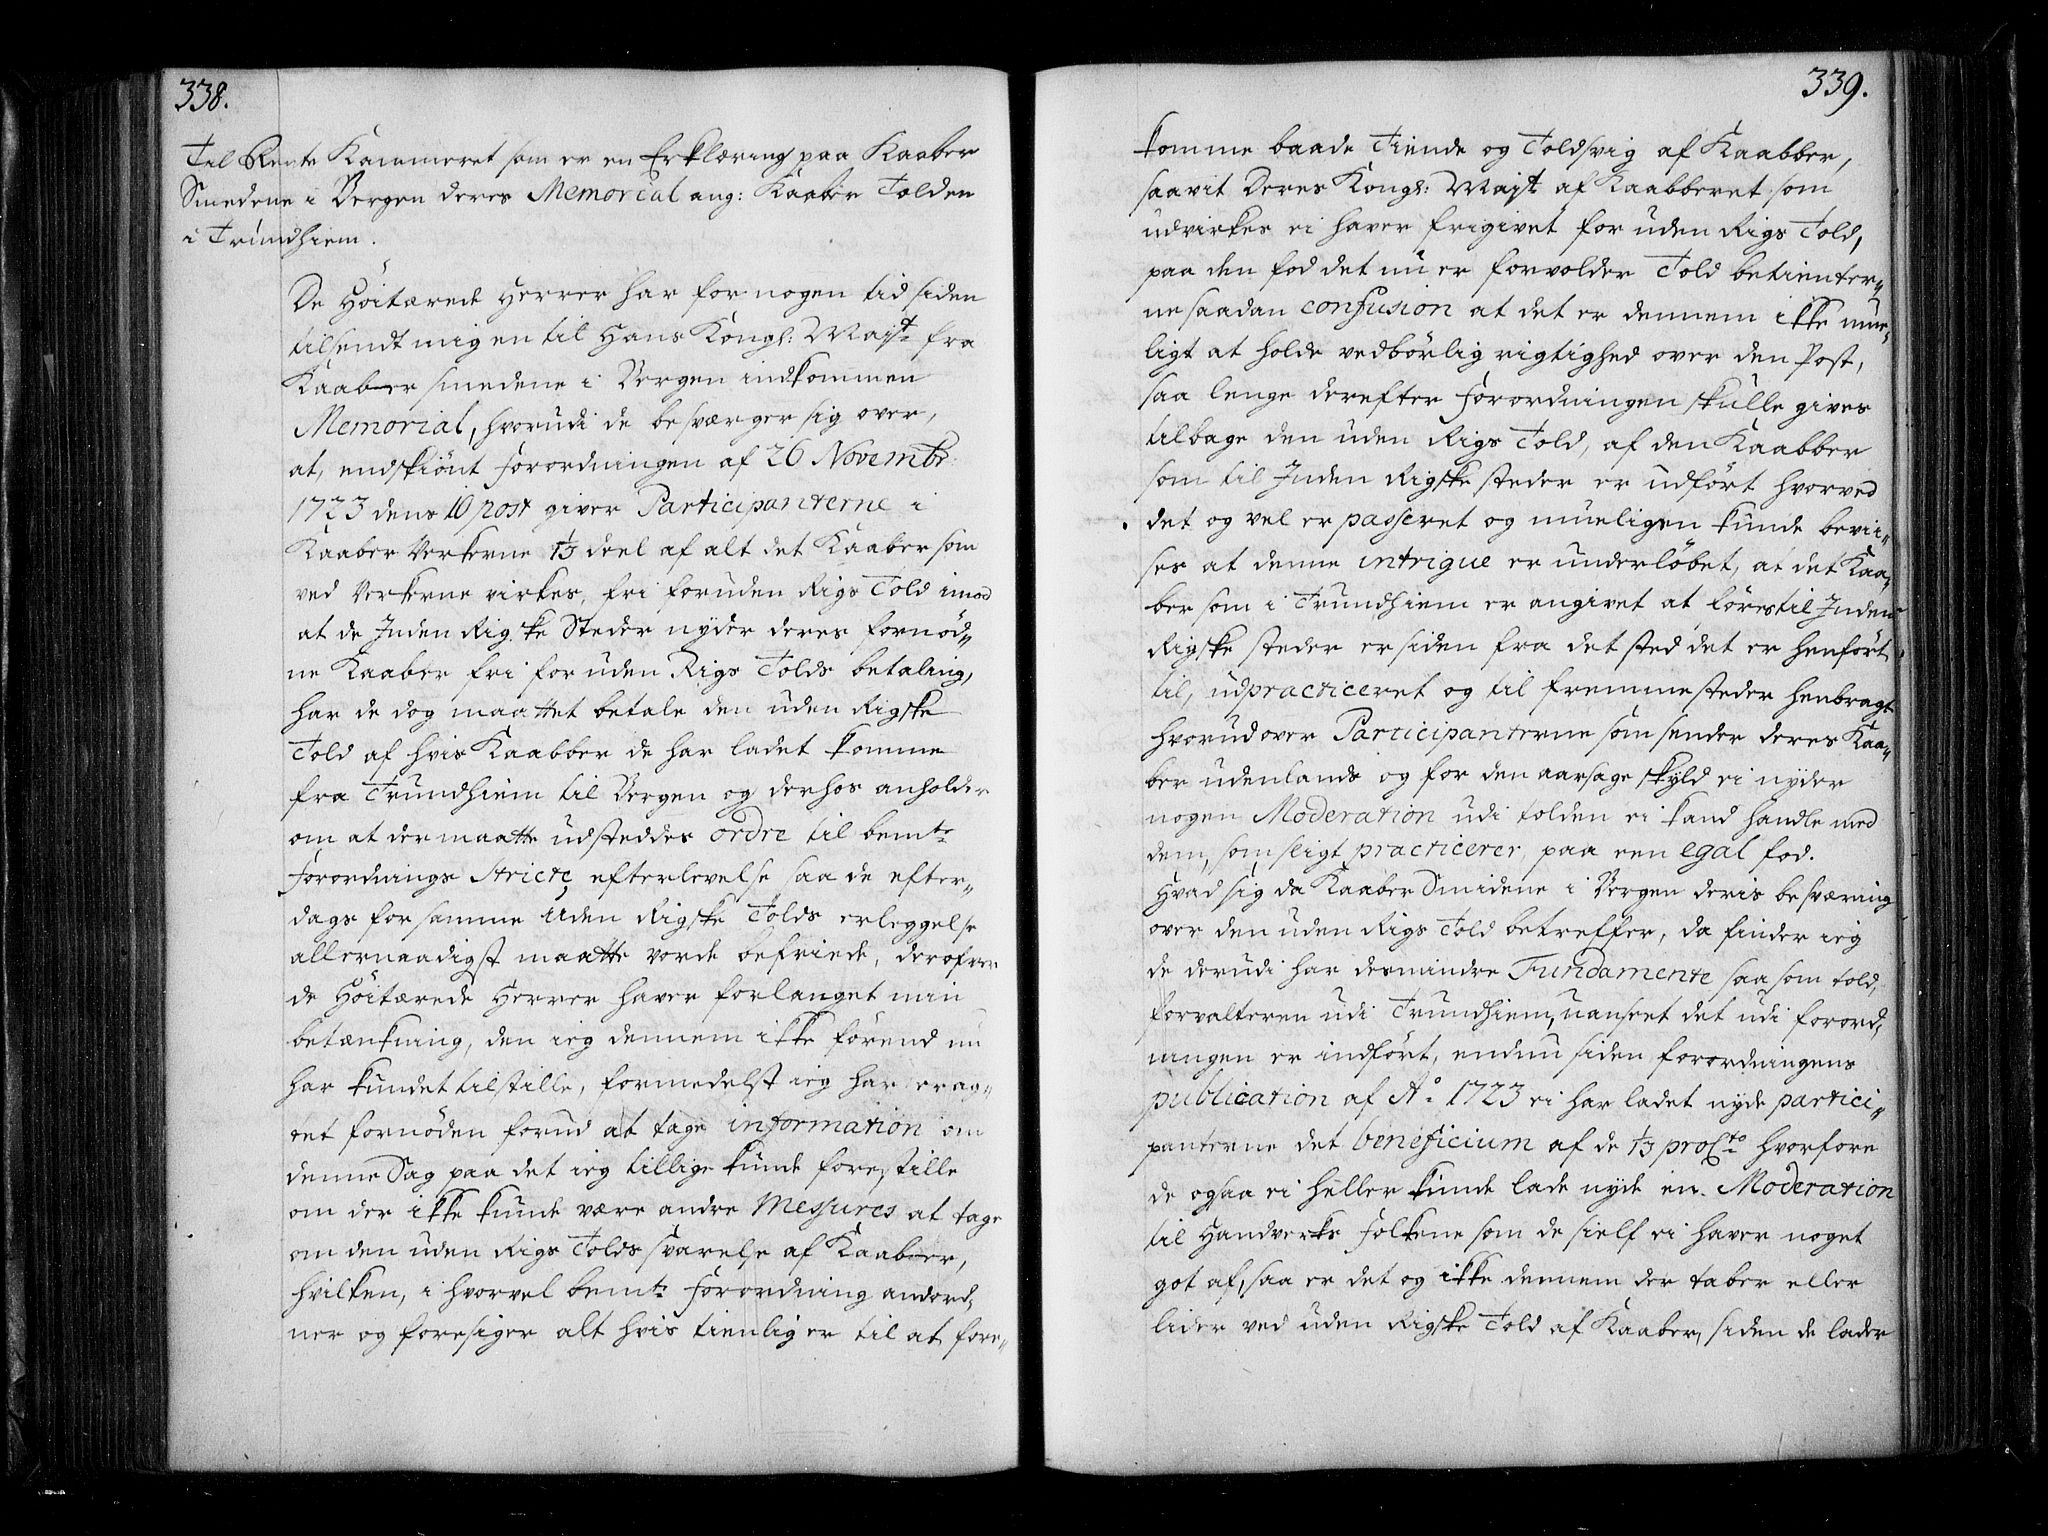 338.
Til Rente Kammeret som er en Erklæring paa Kaaber
Smedene i Bergen deres Memorial ang: Kaaber Tolden
i Trundhiem.
De Höitærede Herrer har for nogen tid siden
tilsendt mig en til Hans Kongl: Mayt. fra
Kaaber smedene i Bergen indkommen
Memorial, hvorudi de besværger sig over,
at, endskiönt forordningen af 26 Novembr.
1723 dens 10 post giver Participanterne i
Kaaber Verkerne 1/3 deel af alt det Kaaber som
ved Verkerne virkes, fri foruden Rigs Told imod
at de Inden Rig ske Steder nyder deres fornöd„
ne Kaaber fri for uden Rigs Tolds betaling,
har de dog maattet betale den uden Rigske
Told af hvis Kaabber de har ladet komme
fra Trundhiem til Bergen og derhos anholder
om at der maatte udstæddes ordre til bemte.
forordnings stricte efterlevelse saa de efter„
dags for samme uden Rigske Tolds erleggelse
allernaadigst maatte vorde befriede, derofver
de Höitærede Herrer haver forlanget min
betænkning, den ieg dennem ikke förend nu
har kundet tilstille, formedelst ieg har erag„
tet fornöden forud at tage information om
denne Sag paa det ieg tillige kunde forestille
om der ikke kunde være andre Messures at tage
om den uden Rigs Tolds svarelse af Kaaber,
hvilken, i hvorvel bemte. forordning anord„
ner og foresiger alt hvis tienlig er til at fore„
339.
komme baade Tiende og Toldsvig af Kaabber,
saavit Deres Kongl: Mayt af Kaabberet som
udvirkes ei haver frigivet for uden Rigs Told,
paa den fod det nu er forvolder Told betienter„
ne saadan confusion at det er dennem ikke mue„
ligt at holde vedbörlig rigtighed over den Post,
saa lenge derefter forordningen skulle gives
tilbage den uden Rigs Told, af den Kaabber
som til Inden Rigske steder er udfört hvorved
det og vel er passeret og mueligen kunde bevii„
ses at denne intrigue er underlöbet, at det Kaa„
ber som i Trundhiem er angivet at föres til Inden
Rigske steder er siden fra det sted det er henfört
til, udpracticeret og til fremmesteder henbragt
hvorudover Participanterne som sender deres Kaa„
ber udenlands og for den aarsage skyld ei nyder
nogen Moderation udi tolden ei kand handle med
dem, som sligt practicerer, paa een egal fod.
Hvad sig da Kaaber Smidene i Bergen deris besværing
over den uden Rigs Told betreffer, da finder ieg
de derudi har desmindre Fundamente saa som told„
forvalteren udi Trundhiem, uanseet det udi forord„
ningen er indfört, endnu siden forordningens
publication af Ao. 1723 ei har ladet nyde partici„
panterne det beneficium af de 1/3 proCto. hvorfore
de ogsaa ei heller kunde lade nyde en Moderation
til Handverks Folkene som de sielf ei haver noget
got af, saa er det og ikke dennem der taber eller
lider ved uden Rigske Told af Kaaber, siden de lader